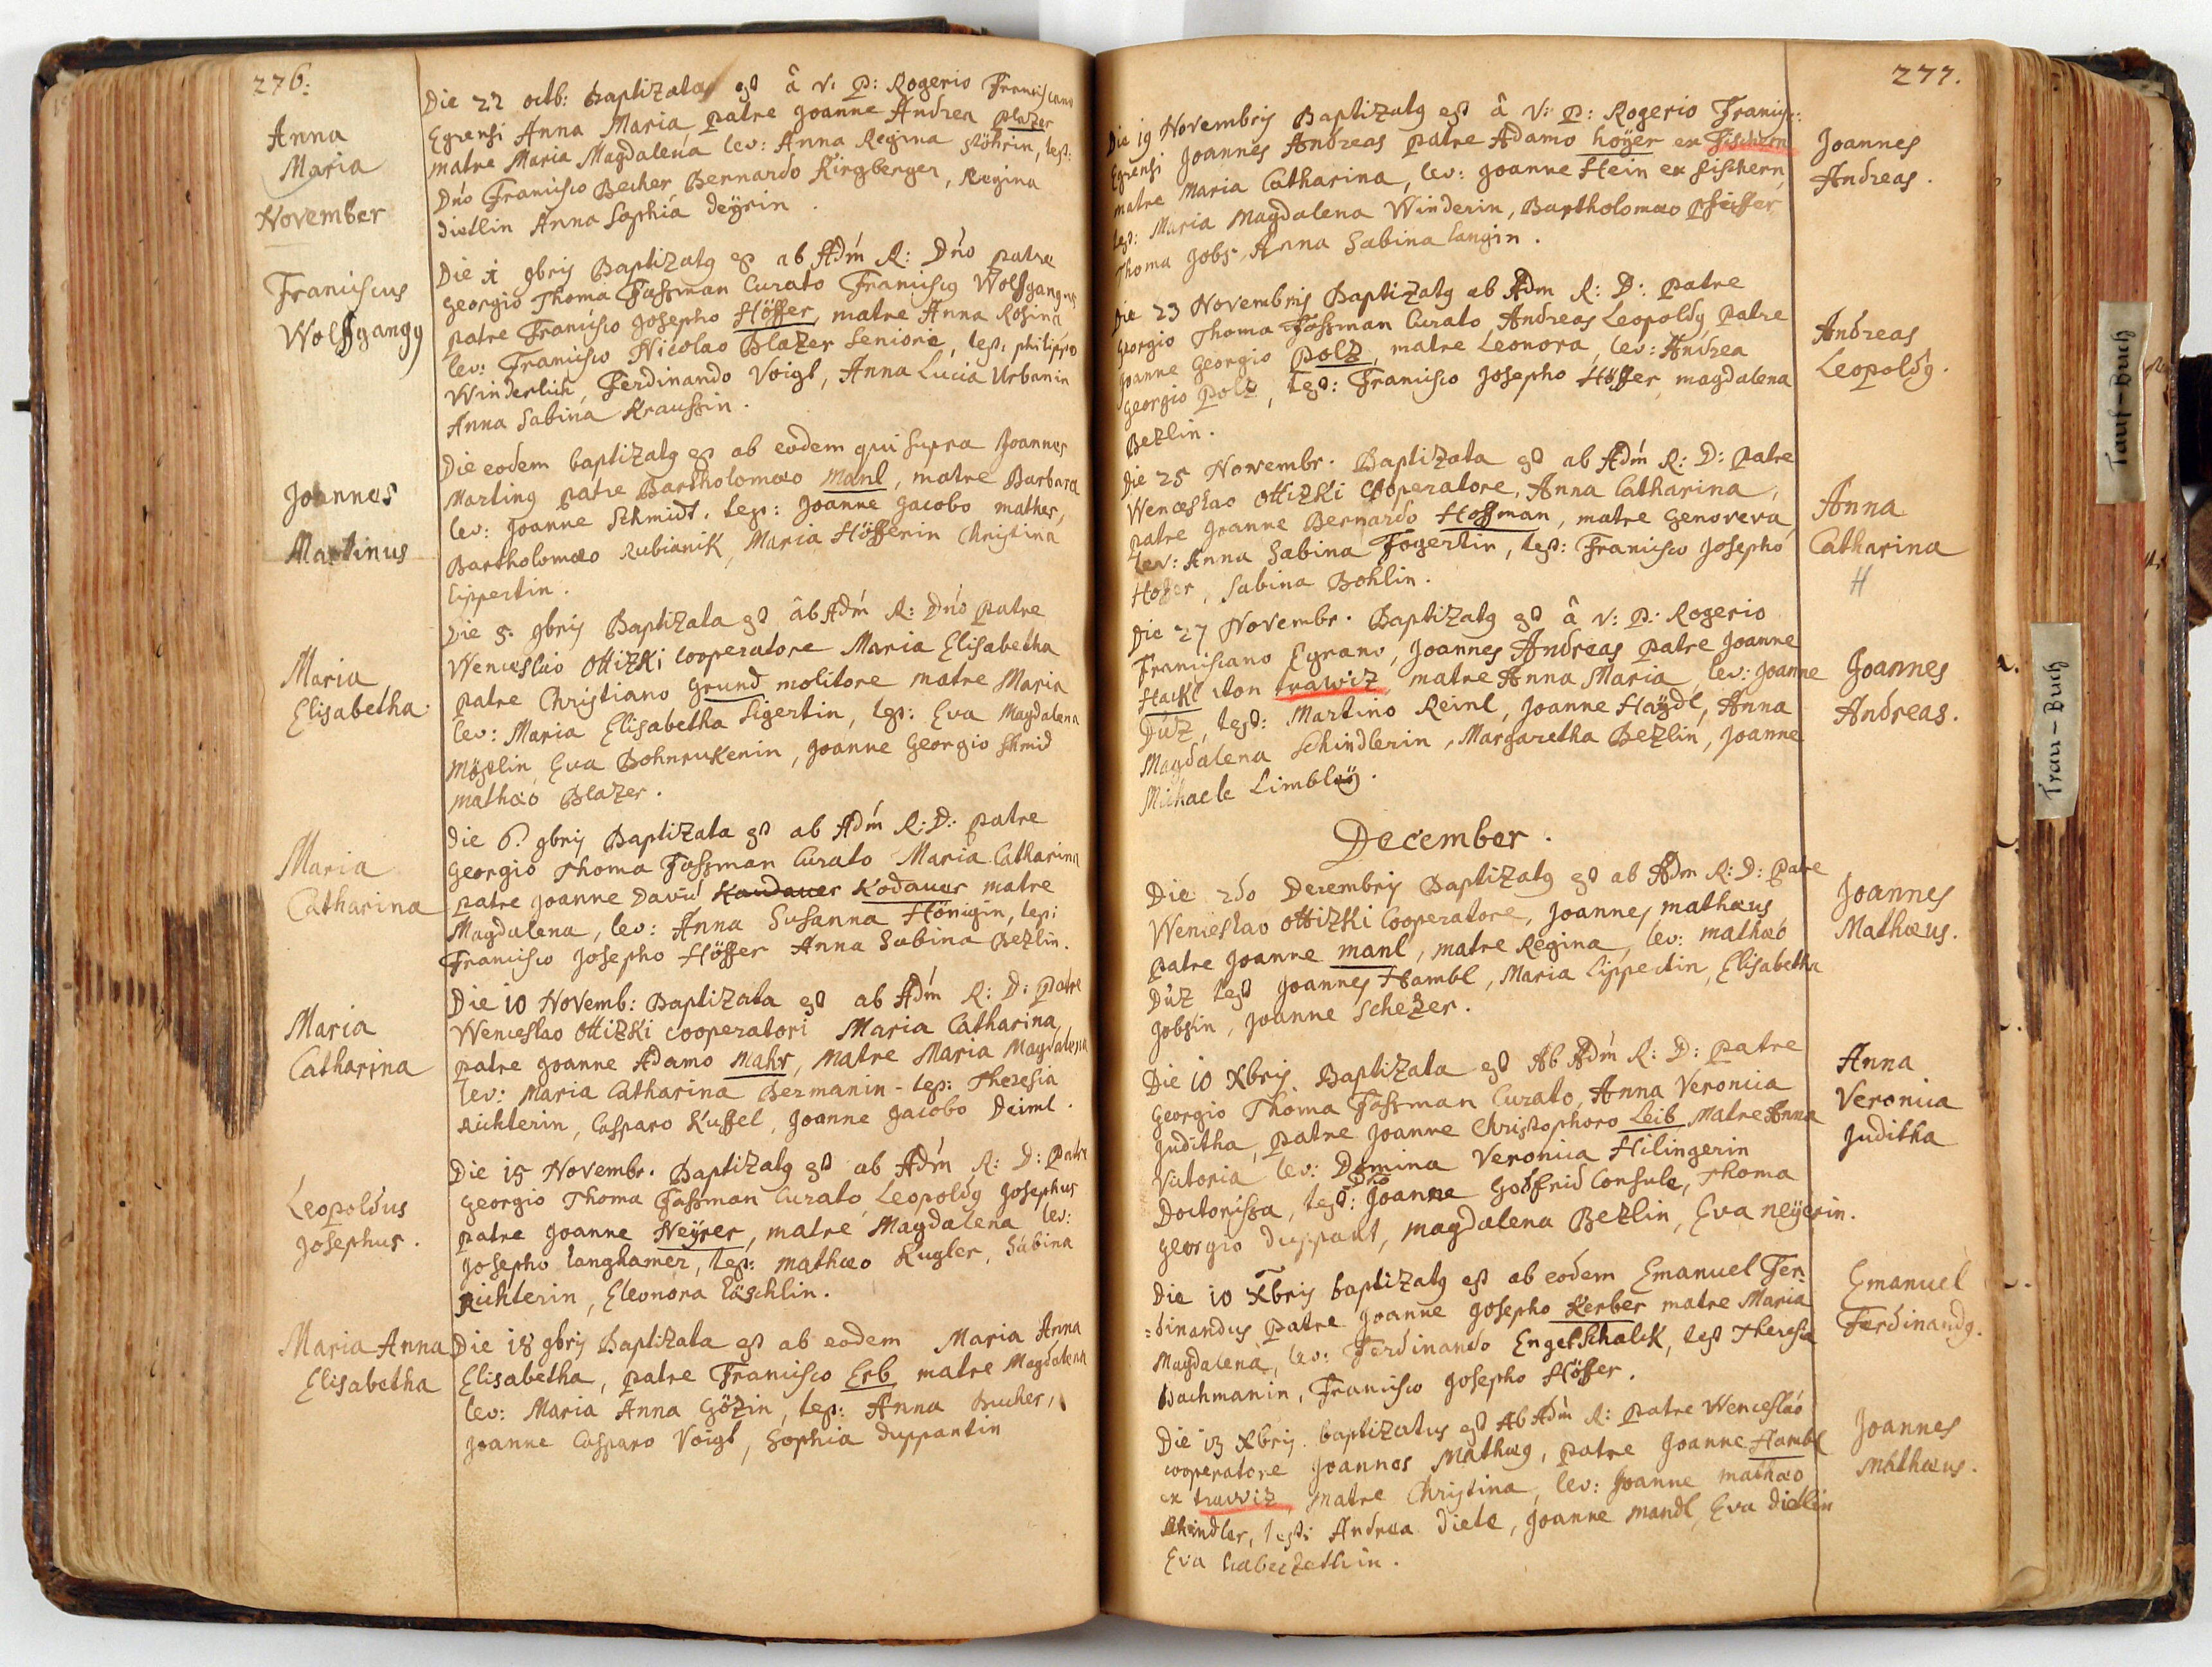 276:
Anna
Maria
Die 22 octb: Baptizata est â v: P: Rogerio Franciscano
Egrensi Anna Maria, patre Joanne Andrea Plazer
matre Maria Magdalena lev: Anna Regina Köhrin, test:
Dno Francisco Becher, Bernardo Kirgberger, Regina
Dietlin Anna Sophia Deÿrin.
November
Franciscus
Wolfgangg
Die 1 9bris Baptizatg est ab Adm R: Dno Patre
Georgio Thoma Fassman Curato Franciscg Wolfgangus
patre Francisco Josepho Höffer, matre Anna Rosina
lev: Francisco Nicolao Blazer Seniore, test: philippo
Winderlich, Ferdinando Voigt, Anna Lucia Urbanin
Anna Sabina Kraussin.
Joannes
Martinus
Die eodem baptizatg est ab eodem qui supra Joannes
Marting patre Bartholomæo Manl, matre Barbara
lev: Joanne Schmidt. test: Joanne Jacobo mather,
Bartholomæo Rubianik, Maria Höfferin Christina
Lippertin.
Maria
Elisabetha.
Die 5. 9bris Baptizata est âb Adm R: Dno Patre
Wenceslao Ottizki cooperatore Maria Elisabetha
patre Christiano Grund molitore matre Maria
lev: Maria Elisabetha Sigertin, test: Eva Magdalena
Möstlin, Eva Bohnrukenin, Joanne Georgio Schmid
mathæo Blazer.
Maria
Catharina
Die 6. 9bris Baptizata est ab Adm R: D: Patre
Georgio Thoma Fassman Curato Maria Catharina
patre Joanne David Kandauer Kodauer matre
Magdalena, lev: Anna Susanna Hönigin, test:
Francisco Josepho Höffer Anna Sabina Bezlin.
Maria
Catharina
Die 10 Novemb: Baptizata est ab Adm R: D: Patre
Wenceslao Ottizki cooperatori Maria Catharina,
patre Joanne Adamo Mahr, Matre Maria Magdalena
lev: Maria Catharina Bermanin - test: Theresia
Richterin, Casparo Kussel, Joanne Jacobo Deiml.
Leopoldus
Josephus.
Die 15 Novembr. Baptizatg est ab Adm R: D: Patre
Georgio Thoma Fassman Curato, Leopoldg Josephus
patre Joanne Neÿrer, matre Magdalena lev:
Josepho Langhamer, test: mathæo Kugler, Sabina
Richterin, Eleonora Löschlin.
Maria Anna
Elisabetha
Die 18 9bris Baptizata est ab eodem Maria Anna
Elisabetha, patre Francisco Erb matre Magdalena
lev: Maria Anna Gözin, test: Anna Bucher,
Joanne Casparo Voigt, Sophia Duppantin
277.
Die 19 Novembris Baptizatg est â V: P: Rogerio Francisc:
Egrensi Joannes Andreas patre Adamo Hoÿer ex Fischern
matre Maria Catharina, lev: Joanne Hein ex Fischern,
test: Maria Magdalena Winderin, Bartholomæo Pfeiffer
Thoma Jobst, Anna Sabina Langin.
Joannes
Andreas.
Die 23 Novembris Baptizatg ab Adm R: D: Patre
Georgio Thoma Fassman Curato, Andreas Leopoldg, Patre
Joanne Georgio Polz, matre Leonora, lev: Andrea
Georgio Polz, test: Francisco Josepho Höffer, magdalena
Bezlin.
Andreas
Leopoldg.
Die 25 Novembr. Baptizata est ab Adm R: D: Patre
Wenceslao Ottizki Cooperatore, Anna Catharina,
patre Joanne Bernardo Hoffman, matre Genoveva
lev: Anna Sabina Fogertin, test: Francisco Josepho
Hofer, Sabina Bohlin.
Anna
Catharina
H
Die 27 Novembr. Baptizatg est â v: P: Rogerio
Franciscano Egrano, Joannes Andreas patre Joanne
Hackl von trawiz, matre Anna Maria, lev: Joanne
Düz, test: Martino Reinl, Joanne Haÿdl, Anna
Magdalena Schindlerin, Margaretha Bezlin, Joanne
Michaele Limblaÿ.
Joannes
Andreas.
December.
Die 2do Decembris Baptizatg est ab Adm R: D: Patre
Wenceslao Ottizki Cooperatore, Joannes mathæus,
patre Joanne Manl, matre Regina, lev: mathæo
Düz test Joannes Hambl, Maria Lippertin, Elisabetha
Jobstin, Joanne Schezer.
Joannes
Mathæus.
Die 10 Xbris. Baptizata est Ab Adm R: D: Patre
Georgio Thoma Fassman Curato, Anna Veronica
Juditha, patre Joanne Christophoro Leib Matre Anna
Victoria lev: Domina Veronica Hilingerin
Doctorissa, test: Dno Joanne Godfrid Consule, Thoma
Georgio Duppaut, Magdalena Bezlin, Eva Neÿerin.
Anna
Veronica
Juditha
Die 10 Xbris baptizatg est ab eodem Emanuel Fer-
=dinandus patre Joanne Josepho Kerber matre Maria
Magdalena, lev: Ferdinando Engelschalck, test Theresia
Bachmanin, Francisco Josepho Höffer.
Emanuel
Ferdinandg.
Die 13 Xbris. baptizatus est Ab Adm R: Patre Wenceslao
cooperatore Joannes Mathæg, patre Joanne Hambl
ex trawiz, matre Christina, lev: Joanne mathæo
Schindler, test: Andrea Diele, Joanne Mandl, Eva Dietlin
Eva
Joannes
Mathæus.
Tauf-Buch
Trau-Buch